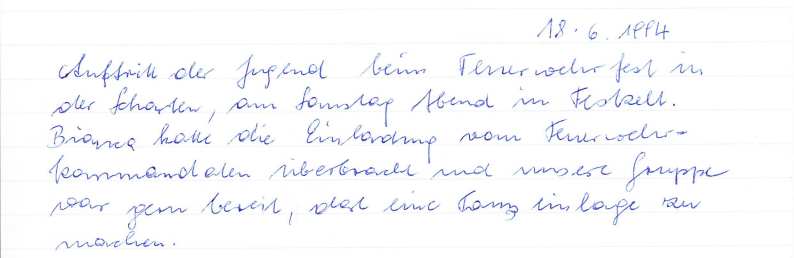 18.6.1994
Auftritt der Jugend beim Feuerwehrfest in
der Scharten, am Samstag Abend im Festzelt.
Bianca hatte die Einladung vom Feuerwehr-
kommandaten überbracht und unsere Gruppe
war gern bereit, dort eine Tanzeinlage zu
machen.